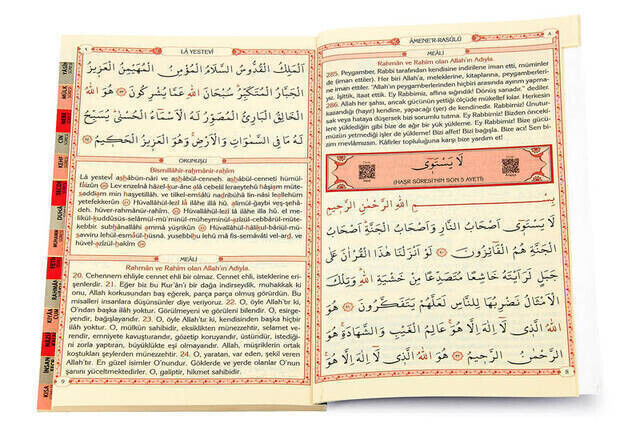 AMENE'R-RASÛLÜ
MEÂLİ
Rahman ve Rahim olan Allah'ın Adıyla.
285. Peygamber, Rabbi tarafından kendisine indirilene iman etti, müminler
de (iman ettiler). Her biri Allah'a, meleklerine, kitaplarına, peygamberleri-
ne iman ettiler. "Allah'ın peygamberlerinden hiçbiri arasında ayırım yapma-
yız. İşittik, itaat ettik. Ey Rabbimiz, affına sığındık! Dönüş sanadır." dediler.
286. Allah her şahsı, ancak gücünün yettiği ölçüde mükellef kılar. Herkesin
kazandığı (hayır) kendine, yapacağı (şer) de kendinedir. Rabbimiz! Unutur-
sak veya hataya düşersek bizi sorumlu tutma. Ey Rabbimiz! Bizden önceki-
lere yüklediğin gibi bize de ağır bir yük yükleme. Ey Rabbimiz! Bize gücü-
müzün yetmediği işler de yükleme! Bizi affet! Bizi bağışla. Bize acı! Sen bi-
zim mevlâmızsın. Kâfirler topluluğuna karşı bize yardım et!
لَا يَسْتَوِى
(HAŞR SÛRESİ'NİN SON 5 AYETİ)
بِسْمِ اللّٰهِ الرَّحْمٰنِ الرَّحِيمِ
لَا يَسْتَوِى اَصْحَابُ النَّارِ وَاَصْحَابُ الْجَنَّةِ اَصْحَابُ
الْجَنَّةِ هُمُ الْفَائِزُونَ ﴿٢٠﴾ لَوْ اَنْزَلْنَا هٰذَا الْقُرْاٰنَ عَلٰى
جَبَلٍ لَرَاَيْتَهُ خَاشِعًا مُتَصَدِّعًا مِنْ خَشْيَةِ اللّٰهِ وَتِلْكَ
الْاَمْثَالُ نَضْرِبُهَا لِلنَّاسِ لَعَلَّهُمْ يَتَفَكَّرُونَ ﴿٢١﴾ هُوَ
اللّٰهُ الَّذِى لَا اِلٰهَ اِلَّا هُوَ عَالِمُ الْغَيْبِ وَالشَّهَادَةِ هُوَ
الرَّحْمٰنُ الرَّحِيمُ ﴿٢٢﴾ هُوَ اللّٰهُ الَّذِى لَا اِلٰهَ اِلَّا هُوَ
8
LÂ YESTEVÎ
اَلْمَلِكُ الْقُدُّوسُ السَّلَامُ الْمُؤْمِنُ الْمُهَيْمِنُ الْعَزِيزُ
الْجَبَّارُ الْمُتَكَبِّرُ سُبْحَانَ اللّٰهِ عَمَّا يُشْرِكُونَ ﴿٢٣﴾ هُوَ اللّٰهُ
الْخَالِقُ الْبَارِئُ الْمُصَوِّرُ لَهُ الْاَسْمَاءُ الْحُسْنٰى يُسَبِّحُ
لَهُ مَا فِى السَّمٰوَاتِ وَالْاَرْضِ وَهُوَ الْعَزِيزُ الْحَكِيمُ ﴿٢٤﴾
OKUNUŞU
Bismillâhir-rahmânir-rahîm
Lâ yestevî ashâbün-nâri ve ashâbül-cenneh. ashâbül-cenneti hümül-
fâizûn (20) Lev enzelnâ hâzel-kur-âne alâ cebelil leraeytehû hâşiam müte-
saddiam min haşyetillâh. ve tilkel-emsâlü nadribühâ lin-nâsi leallehüm
yetefekkerûn (21) Hüvallâhül-lezî lâ ilâhe illâ hû. alimül-ğaybi veş-şehâ-
deh. hüver-rahmânür-rahîm. (22) Hüvallâhül-lezî lâ ilâhe illâ hû. el me-
likül-kuddûsüs-selâmül-mü'minül-müheyminül-azîzül-cebbârul-müte-
kebbir. sübhânallâhi ammâ yüşrikûn (23) Hüvallâhül-hâlikul-bâriül-mü-
savviru lehül-esmâül-hüsnâ. yusebbihu lehû mâ fis-semâvâti vel-ard, ve
hüvel-azîzul-hakîm (24)
MEÂLİ
Rahman ve Rahim olan Allah'ın Adıyla.
20. Cehennem ehliyle cennet ehli bir olmaz. Cennet ehli, isteklerine eri-
şenlerdir. 21. Eğer biz bu Kur'ân'ı bir dağa indirseydik, muhakkak ki
onu, Allah korkusundan baş eğerek, parça parça olmuş görürdün. Bu
misalleri insanlara düşünsünler diye veriyoruz. 22. O, öyle Allah'tır ki,
O'ndan başka ilâh yoktur. Görülmeyeni ve görüleni bilendir. O, esirge-
yendir, bağışlayandır. 23. O, öyle Allah'tır ki, kendisinden başka hiçbir
ilâh yoktur. O, mülkün sahibidir, eksiklikten münezzehtir, selamet ve-
rendir, emniyete kavuşturandır, gözetip koruyandır, üstündür, istediği-
ni zorla yaptıran, büyüklükte eşi olmayandır. Allah, müşriklerin ortak
koştukları şeylerden münezzehtir. 24. O, yaratan, var eden, şekil veren
Allah'tır. En güzel isimler O'nundur. Göklerde ve yerde olanlar O'nun
şanını yüceltmektedirler. O, galiptir, hikmet sahibidir.
9